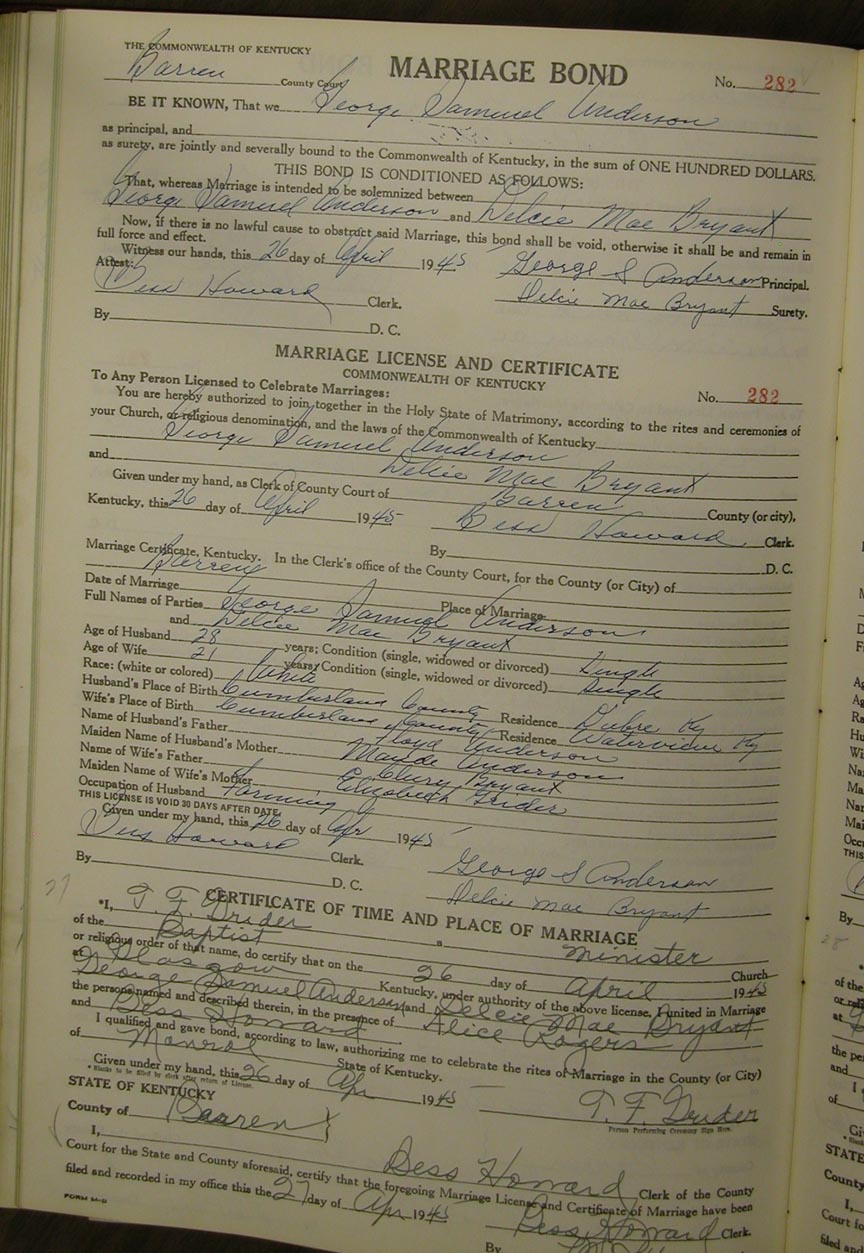 THE COMMONWEALTH OF KENTUCKY
Barren County Court MARRIAGE BOND No. 282
BE IT KNOWN, That we George Samuel Anderson
as principal, and
as surety, are jointly and severally bound to the Commonwealth of Kentucky, in the sum of ONE HUNDRED DOLLARS.
THIS BOND IS CONDITIONED AS FOLLOWS:
That, whereas Marriage is intended to be solemnized between
George Samuel Anderson and Delcie Mae Bryant
Now, if there is no lawful cause to obstruct said Marriage, this bond shall be void, otherwise it shall be and remain in
full force and effect.
Witness our hands, this 26 day of April 1945 George S Anderson Principal.
Attest:
Bess Howard Clerk. Delcie Mae Bryant Surety.
By D. C.
MARRIAGE LICENSE AND CERTIFICATE
COMMONWEALTH OF KENTUCKY
To Any Person Licensed to Celebrate Marriages: No. 282
You are hereby authorized to join together in the Holy State of Matrimony, according to the rites and ceremonies of
your Church, or religious denomination, and the laws of the Commonwealth of Kentucky
George Samuel Anderson
and Delcie Mae Bryant
Given under my hand, as Clerk of County Court of Barren County (or city),
Kentucky, this 26 day of April 1945 Bess Howard Clerk.
By D. C.
Marriage Certificate, Kentucky. In the Clerk's office of the County Court, for the County (or City) of
Barren
Date of Marriage Place of Marriage
Full Names of Parties George Samuel Anderson
and Delcie Mae Bryant
Age of Husband 28 years; Condition (single, widowed or divorced) Single
Age of Wife 21 years; Condition (single, widowed or divorced) Single
Race: (white or colored) White
Husband's Place of Birth Cumberland County Residence Dubre Ky
Wife's Place of Birth Cumberland County Residence Waterview Ky
Name of Husband's Father Floyd Anderson
Maiden Name of Husband's Mother Maude Anderson
Name of Wife's Father Bryant
Maiden Name of Wife's Mother Elizabeth Grider
Occupation of Husband Farming
THIS LICENSE IS VOID 30 DAYS AFTER DATE.
Given under my hand, this 26 day of Apr 1945
Bess Howard Clerk. George S Anderson
By D. C. Delcie Mae Bryant
CERTIFICATE OF TIME AND PLACE OF MARRIAGE
*I, T. F. Grider a minister
of the Baptist Church
or religious order of that name, do certify that on the 26 day of April 1945
at Glasgow Kentucky, under authority of the above license, I united in Marriage
George Samuel Anderson and Delcie Mae Bryant
the persons named and described therein, in the presence of Alice Rogers
and Bess Howard
I qualified and gave bond, according to law, authorizing me to celebrate the rites of Marriage in the County (or City)
of Monroe State of Kentucky.
Given under my hand, this 26 day of Apr 1945
*Blanks to be filled by clerk after return of License. T. F. Grider
Person Performing Ceremony Sign Here.
STATE OF KENTUCKY
County of Barren
I, Bess Howard Clerk of the County
Court for the State and County aforesaid, certify that the foregoing Marriage License and Certificate of Marriage have been
filed and recorded in my office this the 27 day of Apr 1945
Bess Howard Clerk.
By